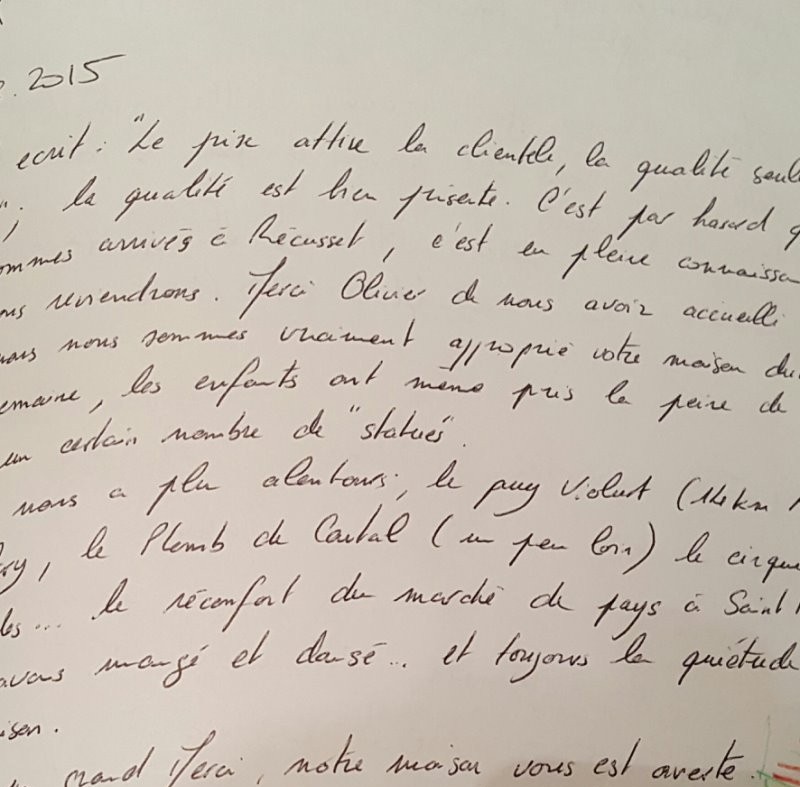 2015
ecrit : "Le prix attire la clientèle, la qualité seule
". la qualité est bien présente. C'est par hasard q
ommes arrivés à Récusset, c'est en pleine connaissan
ous reviendrons. Merci Olivier de nous avoir accueilli
nous sommes vraiment approprié votre maison du
emaine, les enfants ont même pris la peine de
un certain nombre de "statues".
nous a plu alentours : le puy Violent (14 km
ry, le Plomb du Cantal (un peu loin) le cirque
les... le réconfort du marché de pays à Saint
avons mangé et dansé... et toujours la quiétude
ison.
grand Merci, notre maison vous est ouverte.